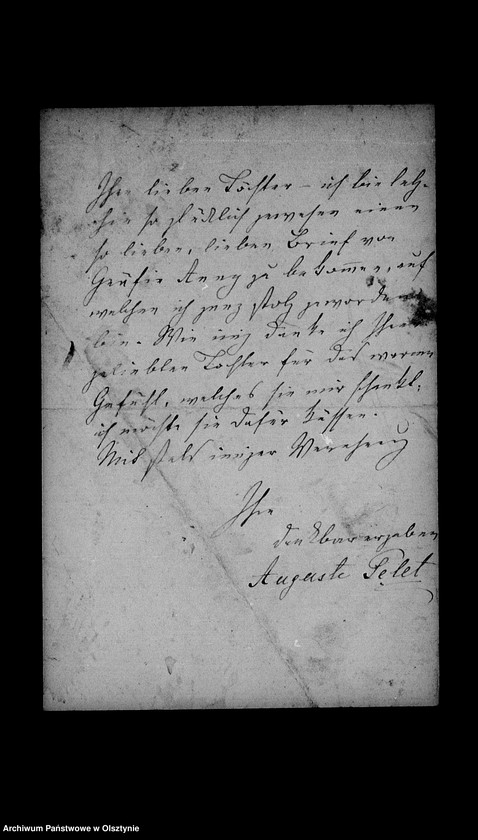 Ihre lieben Tochter – ich bin letz-
thin so glücklich gewesen einen
so lieben, lieben Brief von
Gräfin Anny zu bekommen, auf
welchen ich ganz stolz geworden
bin. Wie innig danke ich Ihrer
geliebten Tochter für das warme
Gefühl, welches sie mir schenkt,
ich möchte sie dafür küssen.
Mit stets inniger Verehrung
Ihre
dankbar ergebene
Auguste Pelet
Archiwum Państwowe w Olsztynie